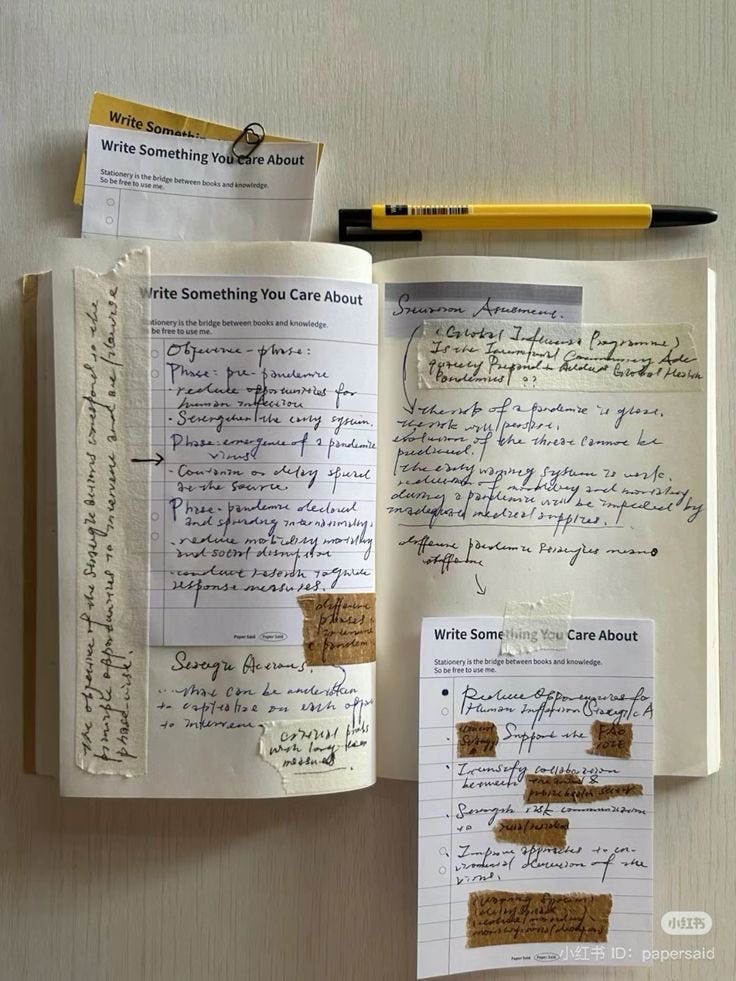 Write Somethin
Write Something You Care About
Stationery is the bridge between books and knowledge.
So be free to use me.
the objective of the strategic actions correspond to the
principle opportunities to intervene and are
phased-wise.
Write Something You Care About
ationery is the bridge between books and knowledge.
be free to use me.
Objective - phase:
Phase: pre-pandemic
- reduce opportunities for
human infection
- Strengthen the early system.
Phase: emergence of a pandemic
virus
- Contain or delay spread
at the source.
Phase: pandemic declared
and spreading internationally.
- reduce morbidity mortality
and social disruption
- conduct research to guide
response measures.
different
phases
intervene
Paper Said Paper Said
Strategic Actions.
that can be undertaken
to capitalize on each
to intervene
critical
with long term
measures.
Situation Assessment.
(Global Influenza Programme)
Is the International Community Ade
quately Prepared to Address Global Health
Pandemics ??
the risk of a pandemic is great.
the risk will persist.
evolution of the threat cannot be
predicted.
the early warning system is weak.
reduction of morbidity and mortality
during a pandemic will be impeded by
inadequate medical supplies.
different pandemic strategies
different
Write Something You Care About
Stationery is the bridge between books and knowledge.
So be free to use me.
Reduce Opportunities for
Human Infection (Strategic A
Support the FAO
Intensify collaboration
between &
public health
Strengthen risk communication
to
Improve approaches to
detection of the
virus.
Paper Said Paper Said
小红书
小红书 ID: papersaid